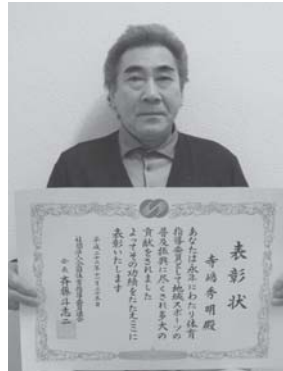 表彰状
寺嶋秀明殿
あなたは永年にわたり体育
指導委員として地域スポーツの
普及振興に尽くされ多大の
貢献をされました
よってその功績をたたえここに
表彰いたします
会長 斉藤斗志二